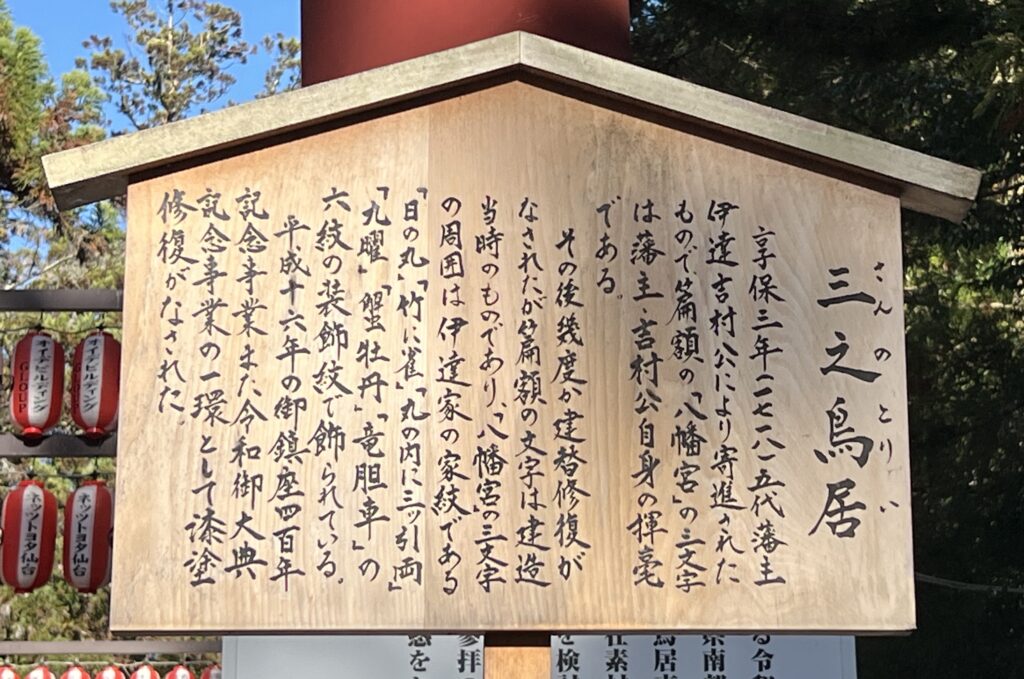 三之鳥居
さんのとりい
享保三年(一七一八)五代藩主
伊達吉村公により寄進された
もので篇額の「八幡宮」の三文字
は藩主・吉村公自身の揮毫
である。
その後幾度か建替修復が
なされたが篇額の文字は建造
当時のものであり、「八幡宮」の三文字
の周囲は伊達家の家紋である
「日の丸」「竹に雀」「丸の内に三ッ引両」
「九曜」「蟹牡丹」「竜胆車」の
六紋の装飾紋で飾られている。
平成十六年の御鎮座四百年
記念事業また令和御大典
記念事業の一環として漆塗
修復がなされた。
オイデビルディング
GLOUP
オイデビルディング
ネッツトヨタ仙台
ネッツトヨタ仙台
る令
鳥居
を検
参拝
惑を